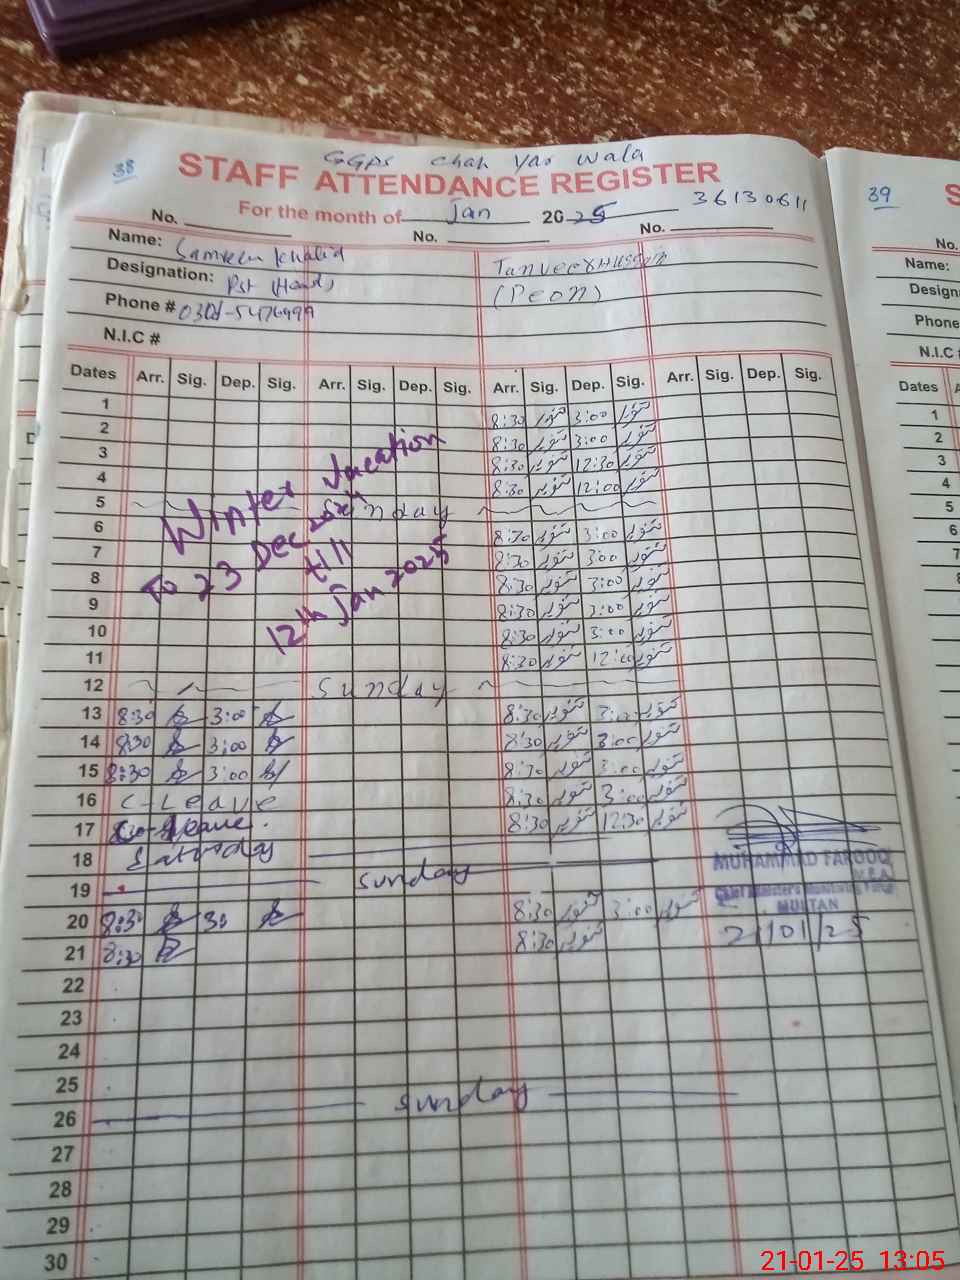 38 GGPS chah Yar wala
STAFF ATTENDANCE REGISTER 39
For the month of Jan 2025 36130611
No. No. No.
Name: Samreen Khalid Tanveer Hussain
Designation: Pst (Head) (Peon)
Phone #
N.I.C #
Dates Arr. Sig. Dep. Sig. Arr. Sig. Dep. Sig. Arr. Sig. Dep. Sig. Arr. Sig. Dep. Sig.
1 8:30 تنویر 3:00 تنویر
2 8:30 تنویر 3:00 تنویر
3 8:30 تنویر 12:30 تنویر
4 8:30 تنویر 12:00 تنویر
5 Sunday
6 8:30 تنویر 3:00 تنویر
7 8:30 تنویر 3:00 تنویر
8 8:30 تنویر 3:00 تنویر
9 8:30 تنویر 3:00 تنویر
10 8:30 تنویر 3:00 تنویر
11 8:30 تنویر 12:00 تنویر
Winter Vacation
To 23 Dec 2024
till
12th Jan 2025
12 Sunday
13 8:30 3:00 8:30 تنویر 3:00 تنویر
14 8:30 3:00 8:30 تنویر 3:00 تنویر
15 8:30 3:00 8:30 تنویر 3:00 تنویر
16 C-Leave 8:30 تنویر 3:00 تنویر
17 leave. 8:30 تنویر 12:30 تنویر
18 Saturday
19 sunday
20 8:30 3: 8:30 تنویر 3:00 تنویر
21 8:30 8:30 تنویر
MUHAMMAD FAROOQ
M.E.A
Chief Minister's Monitoring Force
MULTAN
21/01/25
22
23
24
25
26 sunday
27
28
29
30
No.
Name:
N.I.C
Dates
1
2
3
4
5
6
7
9
10
11
12
13
14
15
16
17
18
19
20
21
22
23
24
25
26
27
28
29
30
21-01-25 13:05